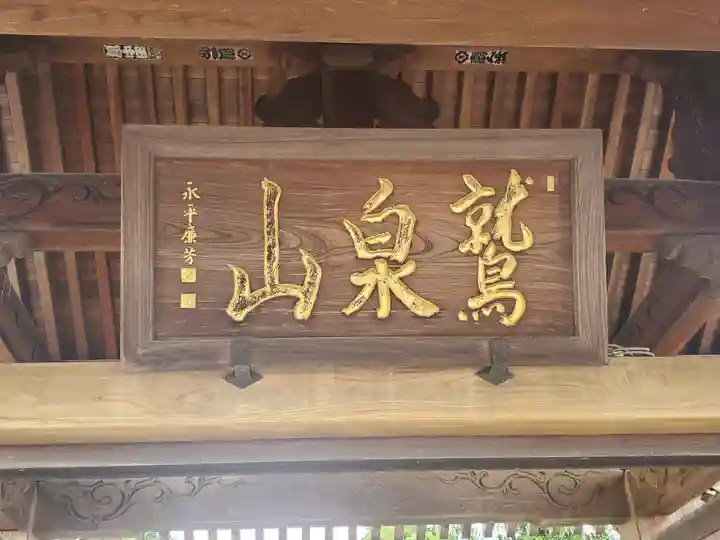 鷲泉山
永平廉芳